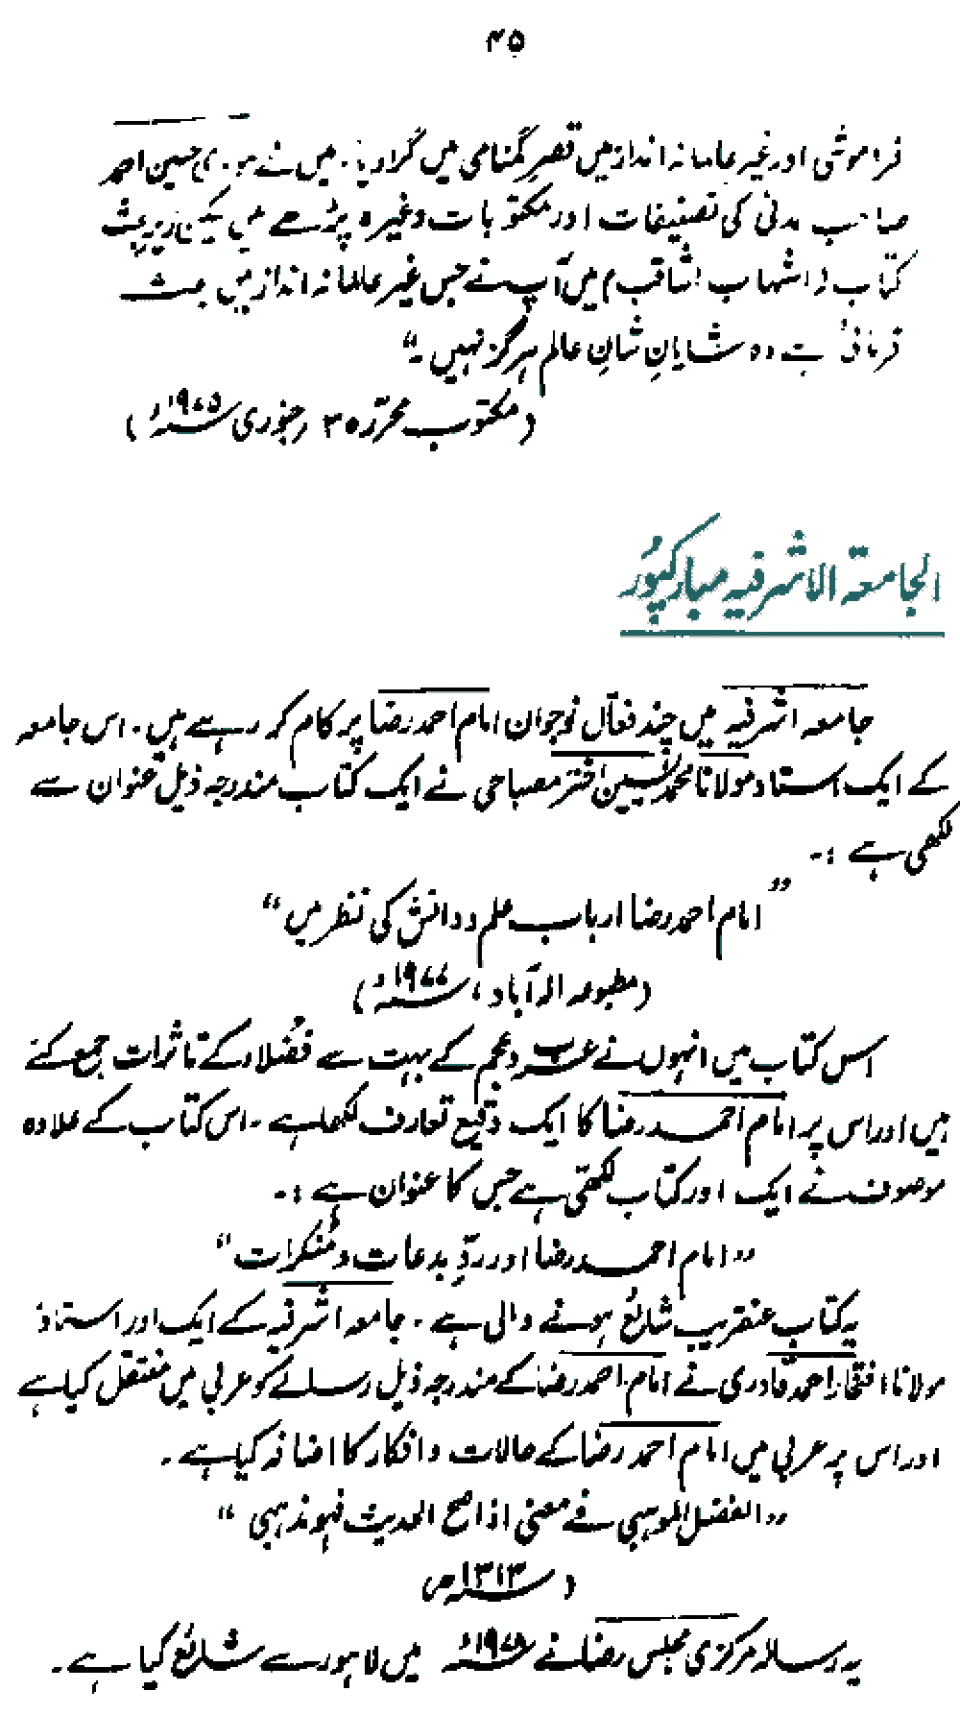 ۴۵
فراموشی اور غیر عالمانہ انداز میں قصرِ گمنامی میں گرا دیا۔ میں نے مولوی حسین احمد
صاحب مدنی کی تصنیفات اور مکتوبات وغیرہ پڑھے ہیں لیکن زیرِ بحث
کتاب (الشہاب الثاقب) میں آپ نے جس غیر عالمانہ انداز میں بحث
فرمائی ہے وہ شایانِ شانِ عالم ہرگز نہیں۔“
(مکتوب محررّہ ۳ جنوری ۱۹۷۵ء)
الجامعۃ الاشرفیہ مبارکپُور
جامعہ اشرفیہ میں چند فعّال نوجوان امام احمد رضا پر کام کر رہے ہیں۔ اس جامعہ
کے ایک استاد مولانا محمد یٰسین اختر مصباحی نے ایک کتاب مندرجہ ذیل عنوان سے
لکھی ہے :۔
”امام احمد رضا ارباب علم و دانش کی نظر میں“
(مطبوعہ الہ آباد ، ۱۹۷۷ء)
اس کتاب میں انہوں نے عرب و عجم کے بہت سے فضلاء کے تاثرات جمع کئے
ہیں اور اس پر امام احمد رضا کا ایک وقیع تعارف لکھا ہے۔ اس کتاب کے علاوہ
موصوف نے ایک اور کتاب لکھی ہے جس کا عنوان ہے :۔
”امام احمد رضا اور ردِّ بدعات و منکرات“
یہ کتاب عنقریب شائع ہونے والی ہے۔ جامعہ اشرفیہ کے ایک اور استاذ
مولانا افتخار احمد قادری نے امام احمد رضا کے مندرجہ ذیل رسالے کو عربی میں منتقل کیا ہے
اور اس پر عربی میں امام احمد رضا کے حالات و افکار کا اضافہ کیا ہے۔
”الفضل الموہبی فے معنی اذا صح الحدیث فہو مذہبی“
(۱۳۱۳ھ)
یہ رسالہ مرکزی مجلس رضا نے ۱۹۷۸ء میں لاہور سے شائع کیا ہے۔